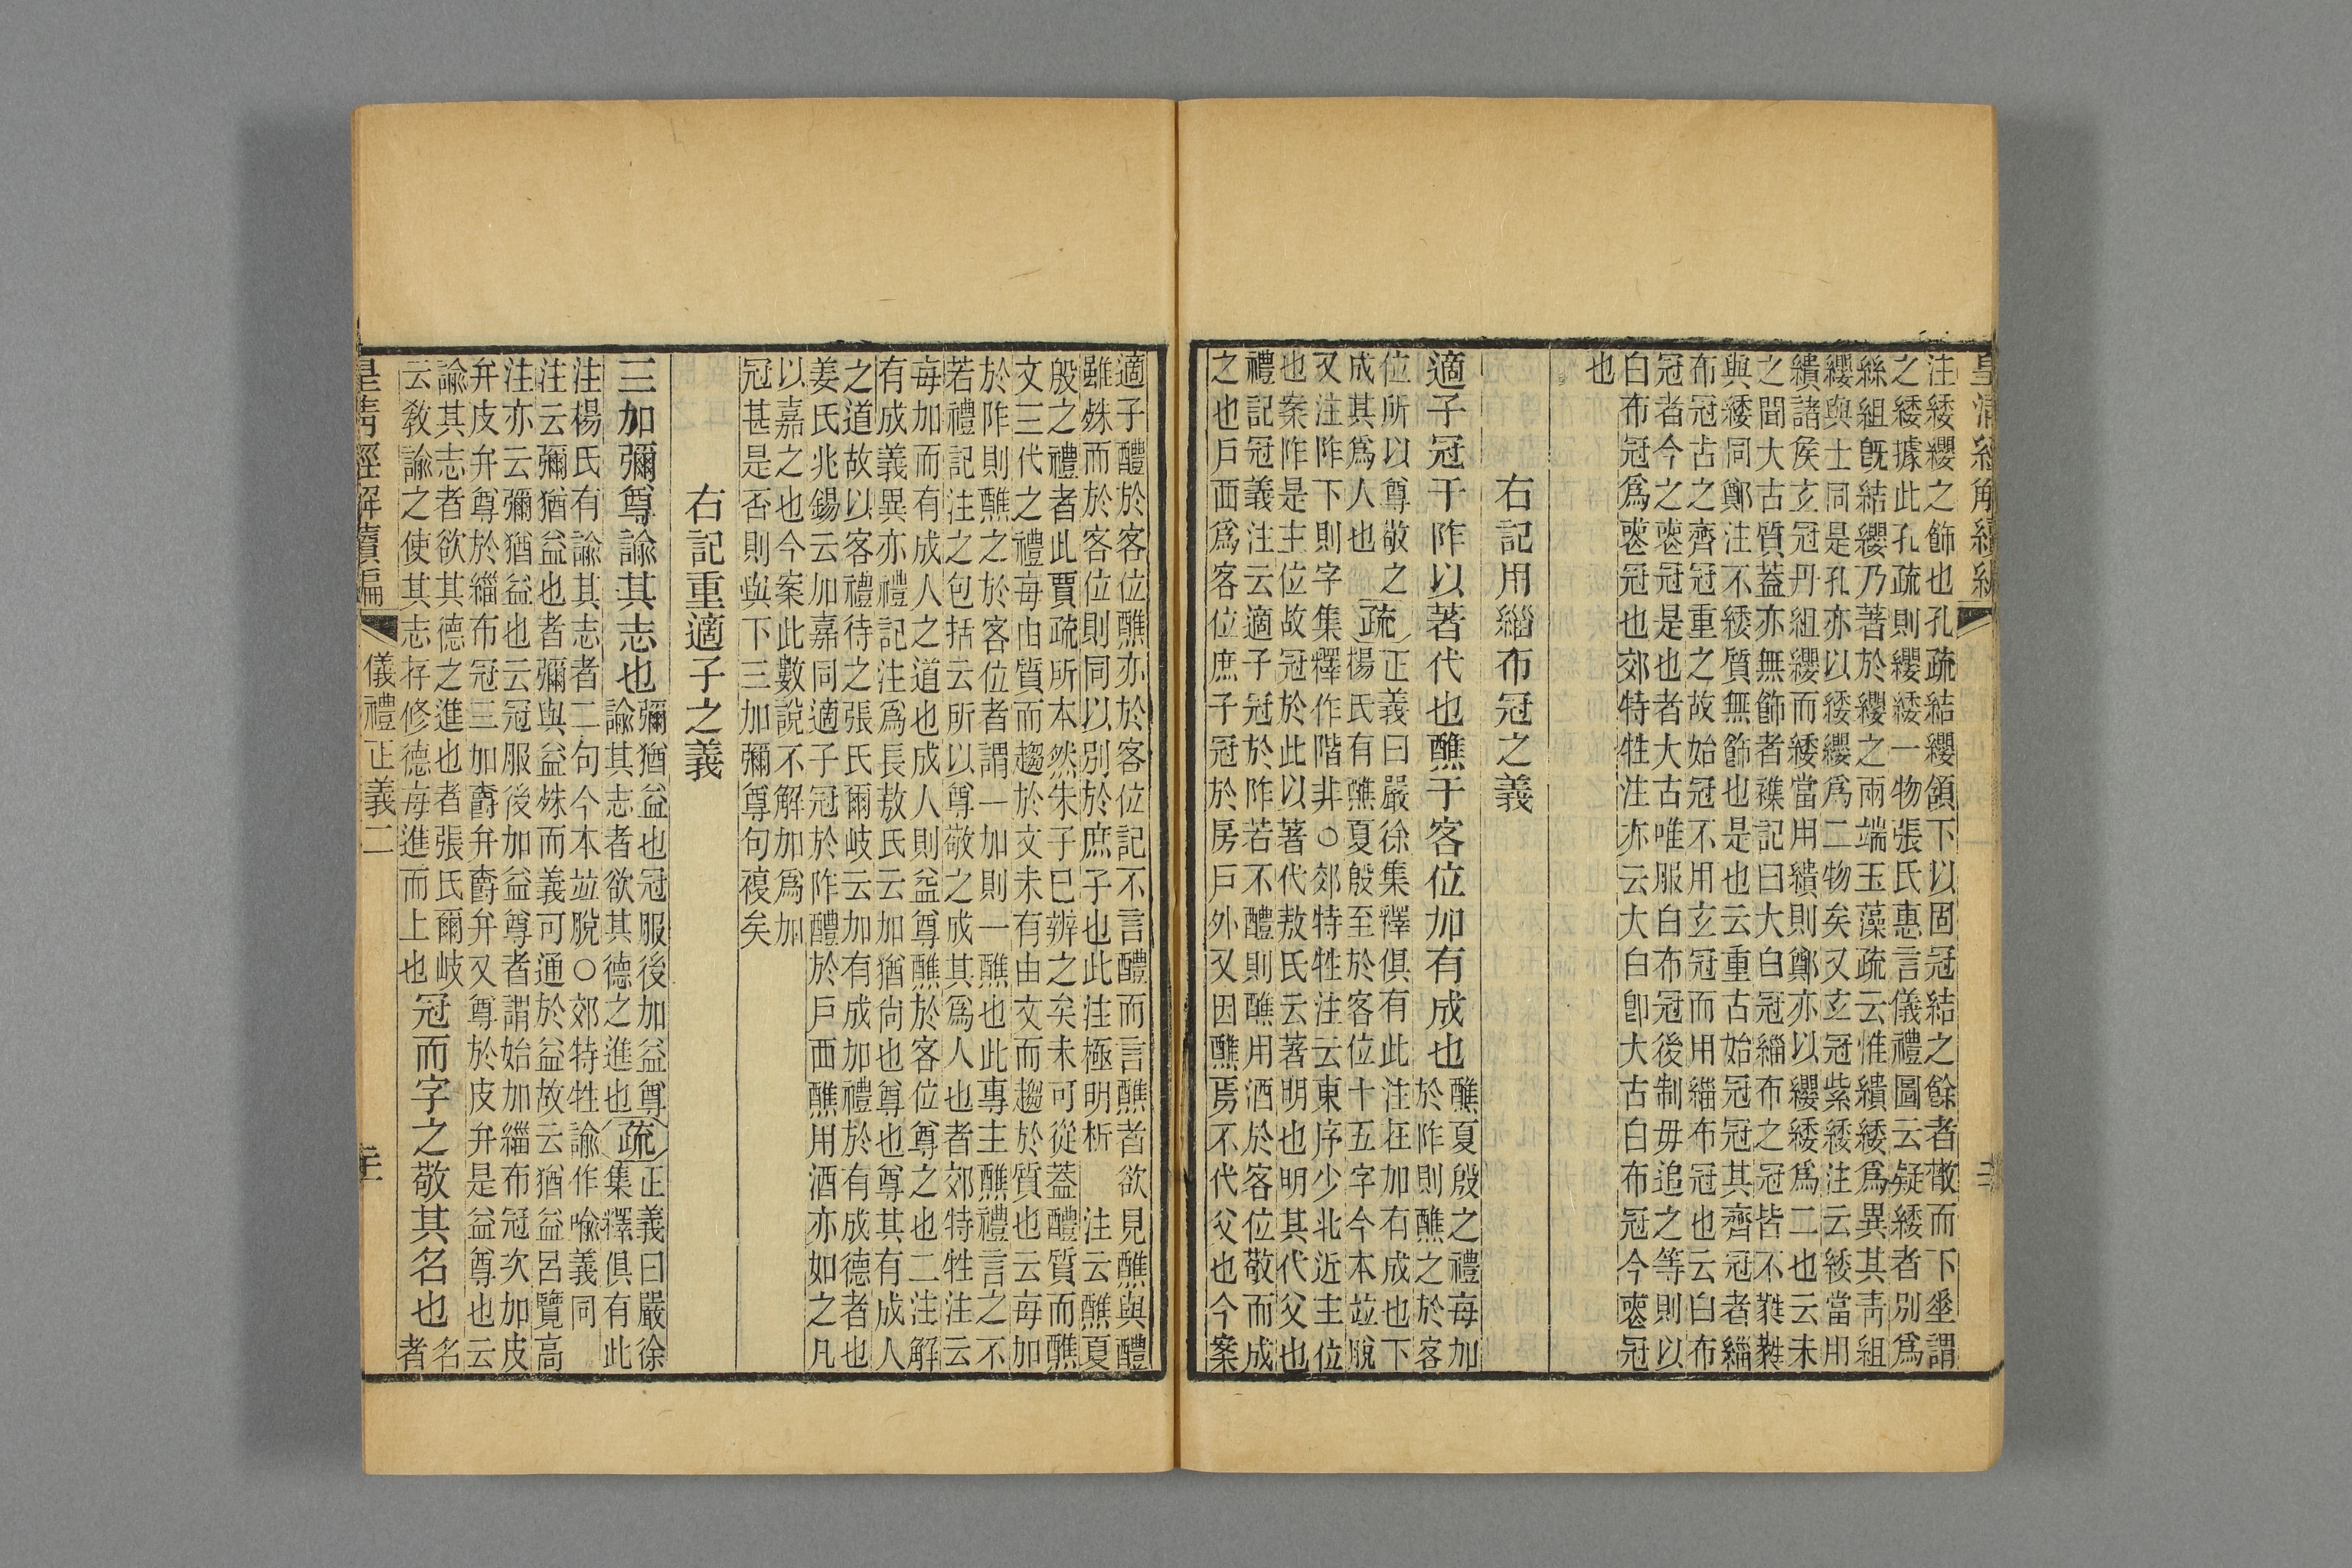 皇清經解續編
注緌纓之飾也孔疏結纓頷下以固冠結之餘者散而下垂謂
之緌據此孔疏則纓緌一物張氏惠言儀禮圖云疑緌者別爲
絲組旣結纓乃著於纓之兩端玉藻疏云惟繢緌爲異其靑組
纓與士同是孔亦以緌纓爲二物矣又玄冠紫緌注云緌當用
繢諸侯玄冠丹組纓而緌當用繢則鄭亦以纓緌爲二也云未
之聞大古質蓋亦無飾者襍記曰大白冠緇布之冠皆不蕤蕤
與緌同鄭注不緌質無飾也是也云重古始冠冠其齊冠者緇
布冠古之齊冠重之故始冠不用玄冠而用緇布冠也云白布
冠者今之喪冠是也者大古唯服白布冠後制毋追之等則以
白布冠爲喪冠也郊特牲注亦云大白卽大古白布冠今喪冠
也
右記用緇布冠之義
適子冠于阼以著代也醮于客位加有成也醮夏殷之禮每加
於阼則醮之於客
位所以尊敬之
成其爲人也疏正義曰嚴徐集釋俱有此注在加有成也下
楊氏有醮夏殷至於客位十五字今本竝脫
又注阼下則字集釋作階非○郊特牲注云東序少北近主位
也案阼是主位故冠於此以著代敖氏云著明也明其代父也
禮記冠義注云適子冠於阼若不醴則醮用酒於客位敬而成
之也戶西爲客位庶子冠於房戶外又因醮焉不代父也今案
適子醴於客位醮亦於客位記不言醴而言醮者欲見醮與醴
雖殊而於客位則同以別於庶子也此注極明析 注云醮夏
殷之禮者此賈疏所本然朱子巳辨之矣未可從蓋醴質而醮
文三代之禮每由質而趨於文未有由文而趨於質也云每加
於阼則醮之於客位者謂一加則一醮也此專主醮禮言之不
若禮記注之包括云所以尊敬之成其爲人也者郊特牲注云
每加而有成人之道也成人則益尊醮於客位尊之也二注解
有成義異亦禮記注爲長敖氏云加猶尙也尊也尊其有成人
之道故以客禮待之張氏爾岐云加有成加禮於有成德者也
姜氏兆錫云加嘉同適子冠於阼醴於戶西醮用酒亦如之凡
以嘉之也今案此數說不解加爲加
冠甚是否則與下三加彌尊句複矣
右記重適子之義
三加彌尊諭其志也彌猶益也冠服後加益尊
諭其志者欲其德之進也疏正義曰嚴徐
集釋俱有此
注楊氏有諭其志者二句今本竝脫○郊特牲諭作喻義同
注云彌猶益也者彌與益殊而義可通於益故云猶益呂覽高
注亦云彌猶益也云冠服後加益尊者謂始加緇布冠次加皮
弁皮弁尊於緇布冠三加爵弁爵弁又尊於皮弁是益尊也云
諭其志者欲其德之進也者張氏爾岐
云敎諭之使其志存修德每進而上也冠而字之敬其名也名
者
皇淸經解續編 儀禮正義二